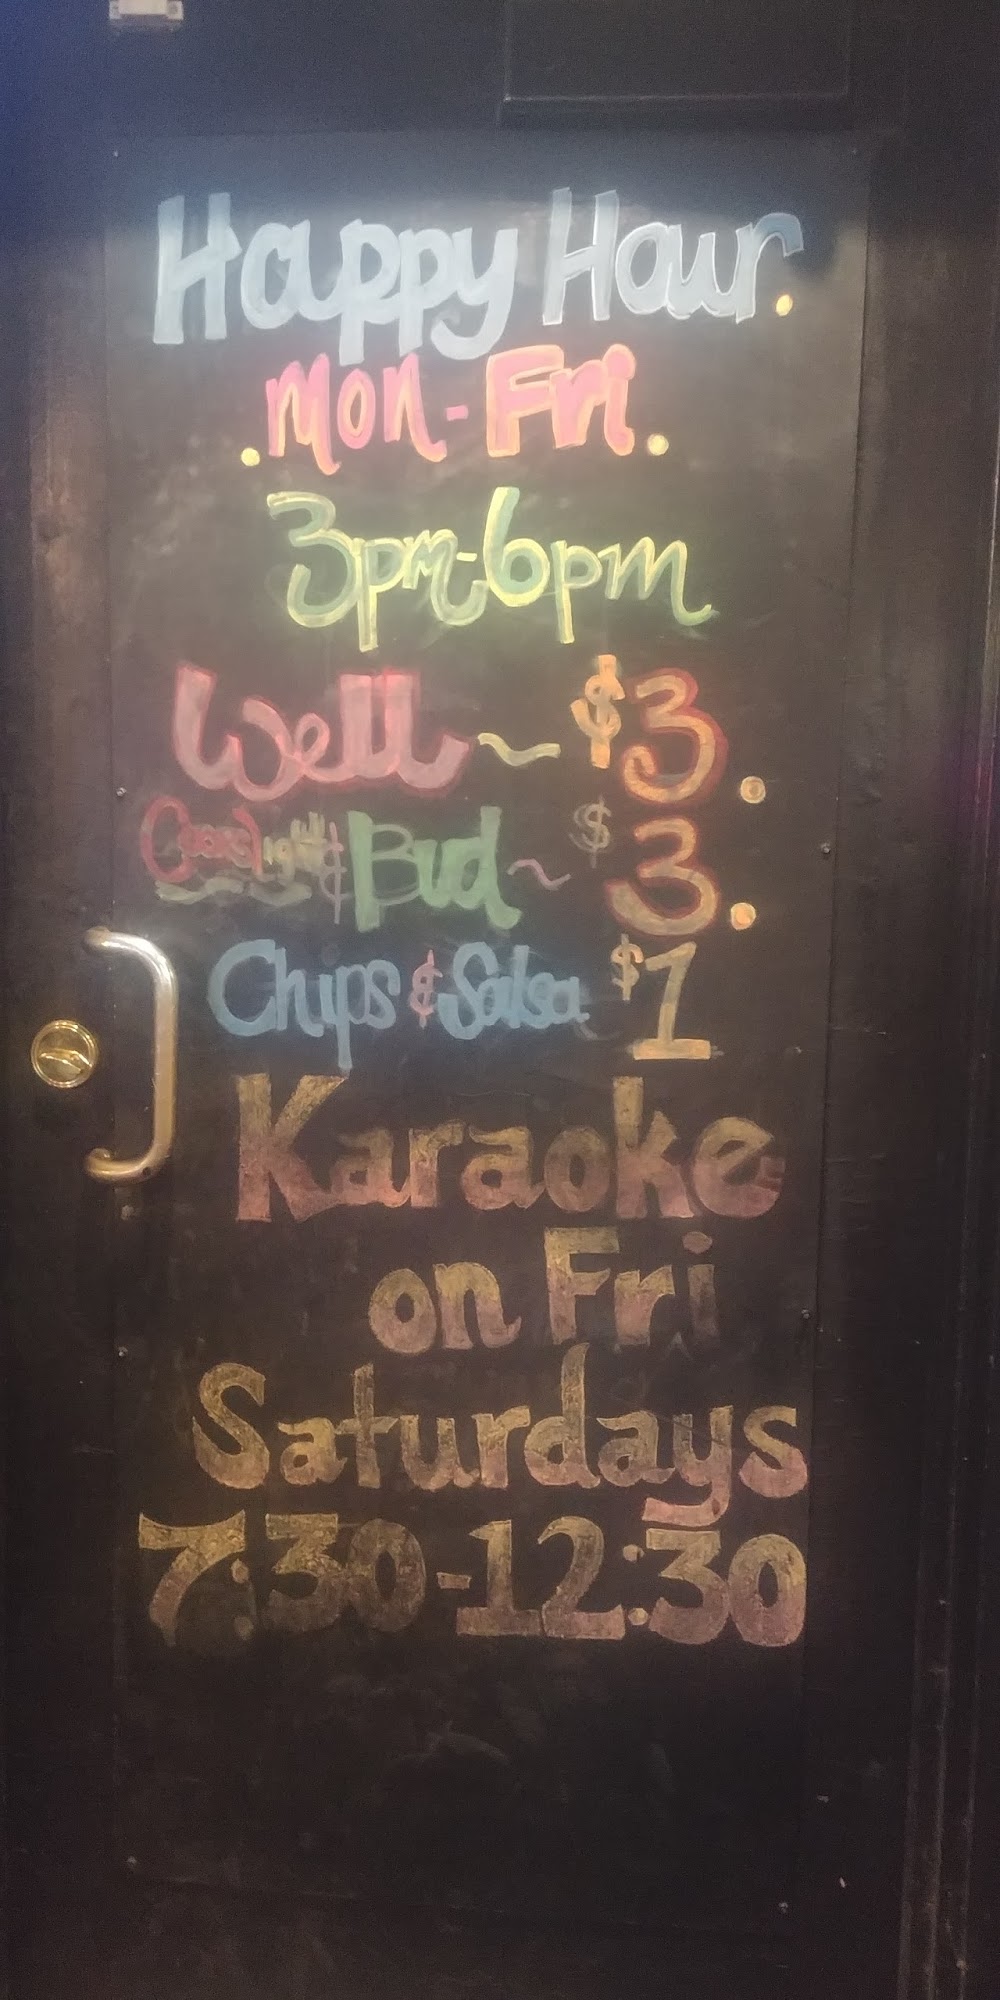 Happy Hour.
. Mon-Fri.
3pm-6pm
Well ~ $3.
Coors Light & Bud ~ $3.
Chips & Salsa $1
Karaoke
on Fri
Saturdays
7:30-12:30